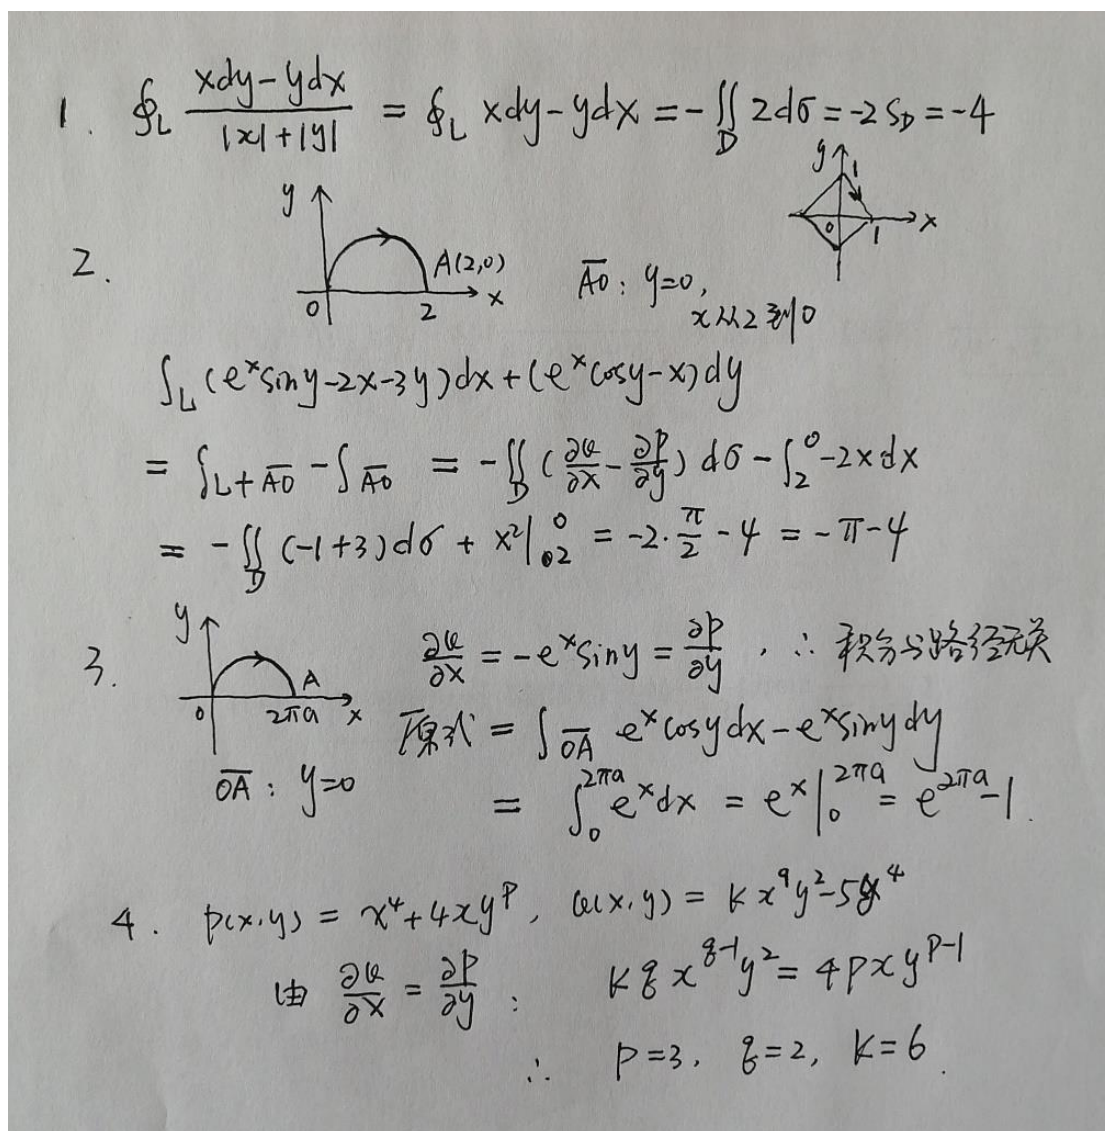 1. ∮_L (xdy-ydx)/(|x|+|y|) = ∮_L xdy-ydx = -∬_D 2dσ = -2S_D = -4
y 1
0 1 x
2.
y
A(2,0)
0 2 x
A̅O̅: y=0,
x从2到0
∫_L (e^x siny-2x-3y)dx+(e^x cosy-x)dy
= ∫_{L+A̅O̅} - ∫_{A̅O̅} = -∬_D (∂Q/∂x - ∂P/∂y) dσ - ∫_2^0 -2xdx
= -∬_D (-1+3)dσ + x²|_2^0 = -2·π/2 - 4 = -π-4
3.
y
A
0 2πa x
O̅A̅: y=0
∂Q/∂x = -e^x siny = ∂P/∂y, ∴ 积分与路径无关
原式 = ∫_{O̅A̅} e^x cosydx - e^x sinydy
= ∫_0^{2πa} e^x dx = e^x|_0^{2πa} = e^{2πa}-1.
4. P(x,y) = x⁴+4xy^p, Q(x,y) = kx^q y²-5y⁴
由 ∂Q/∂x = ∂P/∂y: kqx^{q-1}y² = 4pxy^{p-1}
∴ p=3, q=2, k=6.